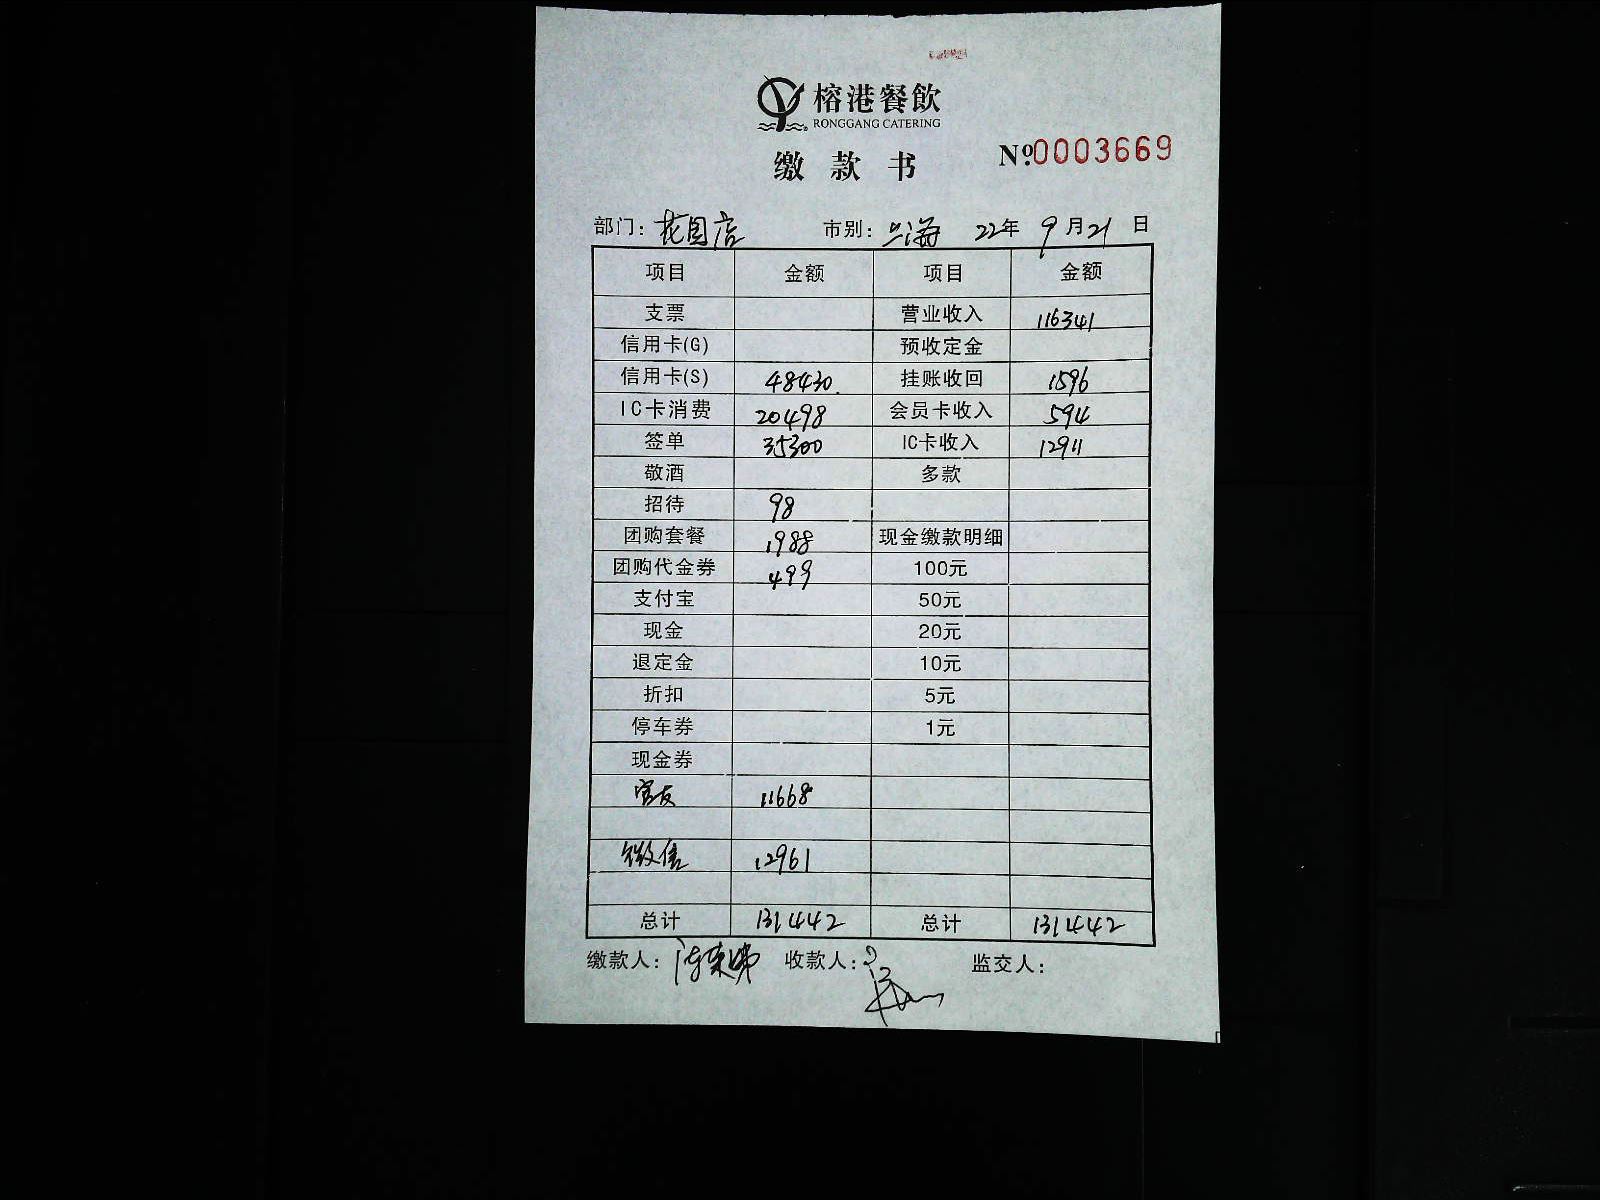 榕港餐飲
RONGGANG CATERING
缴款书 Nº.0003669
部门: 花园店 市别: 上海 22年 9月21日
项目 金额 项目 金额
支票 营业收入 116341
信用卡(G) 预收定金
信用卡(S) 48430 挂账收回 1596
IC卡消费 20498 会员卡收入 594
签单 35300 IC卡收入 12911
敬酒 多款
招待 98
团购套餐 1988 现金缴款明细
团购代金券 499 100元
支付宝 50元
现金 20元
退定金 10元
折扣 5元
停车券 1元
现金券
11668
微信 12961
总计 131442 总计 131442
缴款人: 收款人: 监交人: